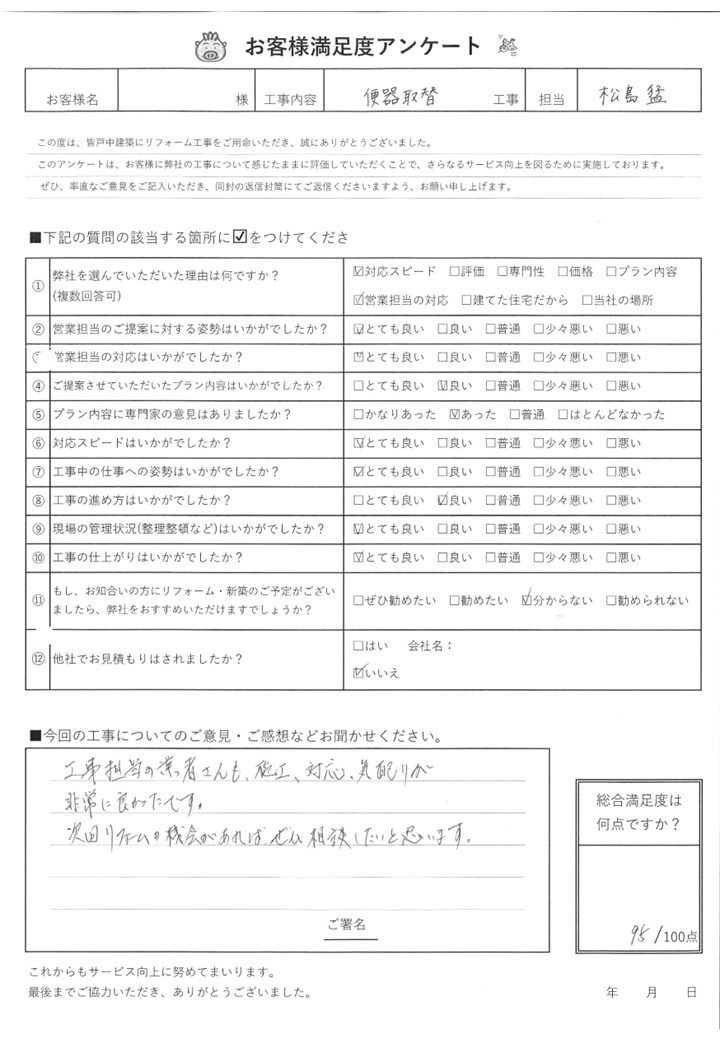 お客様満足度アンケート
お客様名 様 工事内容 便器取替 工事 担当 松島 猛
この度は、皆戸中建築にリフォーム工事をご用命いただき、誠にありがとうございました。
このアンケートは、お客様に弊社の工事について感じたままに評価していただくことで、さらなるサービス向上を図るために実施しております。
ぜひ、率直なご意見をご記入いただき、同封の返信封筒にてご返信くださいますよう、お願い申し上げます。
■下記の質問の該当する箇所に☑をつけてくださ
① 弊社を選んでいただいた理由は何ですか？ ☑対応スピード □評価 □専門性 □価格 □プラン内容
(複数回答可) ☑営業担当の対応 □建てた住宅だから □当社の場所
② 営業担当のご提案に対する姿勢はいかがでしたか？ ☑とても良い □良い □普通 □少々悪い □悪い
営業担当の対応はいかがでしたか？ ☑とても良い □良い □普通 □少々悪い □悪い
④ ご提案させていただいたプラン内容はいかがでしたか？ □とても良い ☑良い □普通 □少々悪い □悪い
⑤ プラン内容に専門家の意見はありましたか？ □かなりあった ☑あった □普通 □ほとんどなかった
⑥ 対応スピードはいかがでしたか？ ☑とても良い □良い □普通 □少々悪い □悪い
⑦ 工事中の仕事への姿勢はいかがでしたか？ ☑とても良い □良い □普通 □少々悪い □悪い
⑧ 工事の進め方はいかがでしたか？ □とても良い ☑良い □普通 □少々悪い □悪い
⑨ 現場の管理状況(整理整頓など)はいかがでしたか？ ☑とても良い □良い □普通 □少々悪い □悪い
⑩ 工事の仕上がりはいかがでしたか？ ☑とても良い □良い □普通 □少々悪い □悪い
⑪ もし、お知合いの方にリフォーム・新築のご予定がござい
ましたら、弊社をおすすめいただけますでしょうか？ □ぜひ勧めたい □勧めたい ☑分からない □勧められない
⑫ 他社でお見積もりはされましたか？ □はい 会社名：
☑いいえ
■今回の工事についてのご意見・ご感想などお聞かせください。
工事担当の業者さんも、施工、対応、気配りが
非常に良かったです。
次回リフォームの機会があれば、ぜひ相談したいと思います。
ご署名
総合満足度は
何点ですか？
95/100点
これからもサービス向上に努めてまいります。
最後までご協力いただき、ありがとうございました。
年 月 日